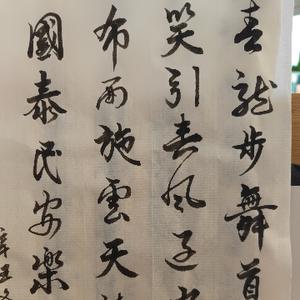 龍步舞首
笑引春風
布雨施雲天
國泰民安樂
辛丑